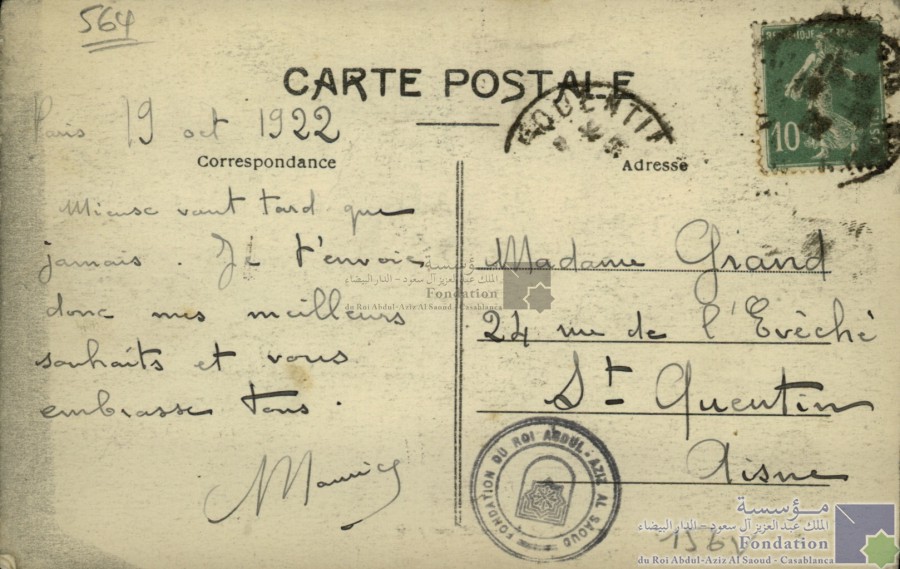 564
CARTE POSTALE
Paris 19 oct 1922
Correspondance
Mieux vaut tard que
jamais. Je t'envoie
donc mes meilleurs
souhaits et vous
embrasse tous.
Maurice
QUENTIN
Adresse
10
Madame Grand
24 rue de l'Evêché
St Quentin
Aisne
FONDATION DU ROI ABDUL-AZIZ AL SAOUD
مؤسسة
الملك عبد العزيز آل سعود - الدار البيضاء
Fondation
du Roi Abdul-Aziz Al Saoud - Casablanca
مؤسسة
الملك عبد العزيز آل سعود - الدار البيضاء
Fondation
du Roi Abdul-Aziz Al Saoud - Casablanca